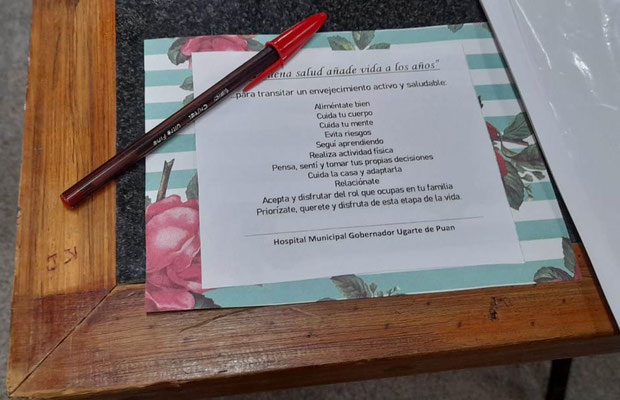 salud añade vida a los años"
para transitar un envejecimiento activo y saludable:
Aliméntate bien
Cuida tu cuerpo
Cuida tu mente
Evita riesgos
Segui aprendiendo
Realiza actividad física
Pensa, sentí y tomar tus propias decisiones
Cuida la casa y adaptarla
Relaciónate
Acepta y disfrutar del rol que ocupas en tu familia
Priorízate, querete y disfruta de esta etapa de la vida.
Hospital Municipal Gobernador Ugarte de Puan